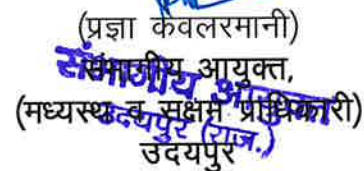 (प्रज्ञा केवलरमानी)
संभागीय आयुक्त,
(मध्यस्थ व सक्षम प्राधिकारी)
उदयपुर
संभागीय आयुक्त
उदयपुर (राज.)